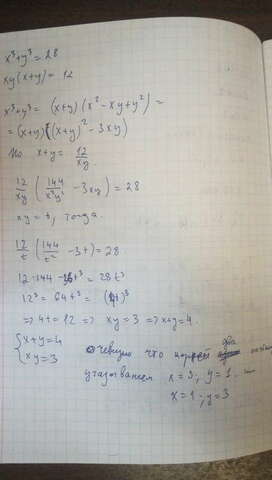 x³+y³=28
xy(x+y)=12
x³+y³=(x+y)(x²-xy+y²)=
=(x+y)((x+y)²-3xy)
Но x+y=12/xy
12/xy(144/x²y²-3xy)=28
xy=t, тогда
12/t(144/t²-3t)=28
12·144-36t³=28t³
12³=64t³=(4t)³
=> 4t=12 => xy=3 => x+y=4.
{x+y=4 Очевидно что два
{xy=3 угадываем x=3, y=1
x=1, y=3